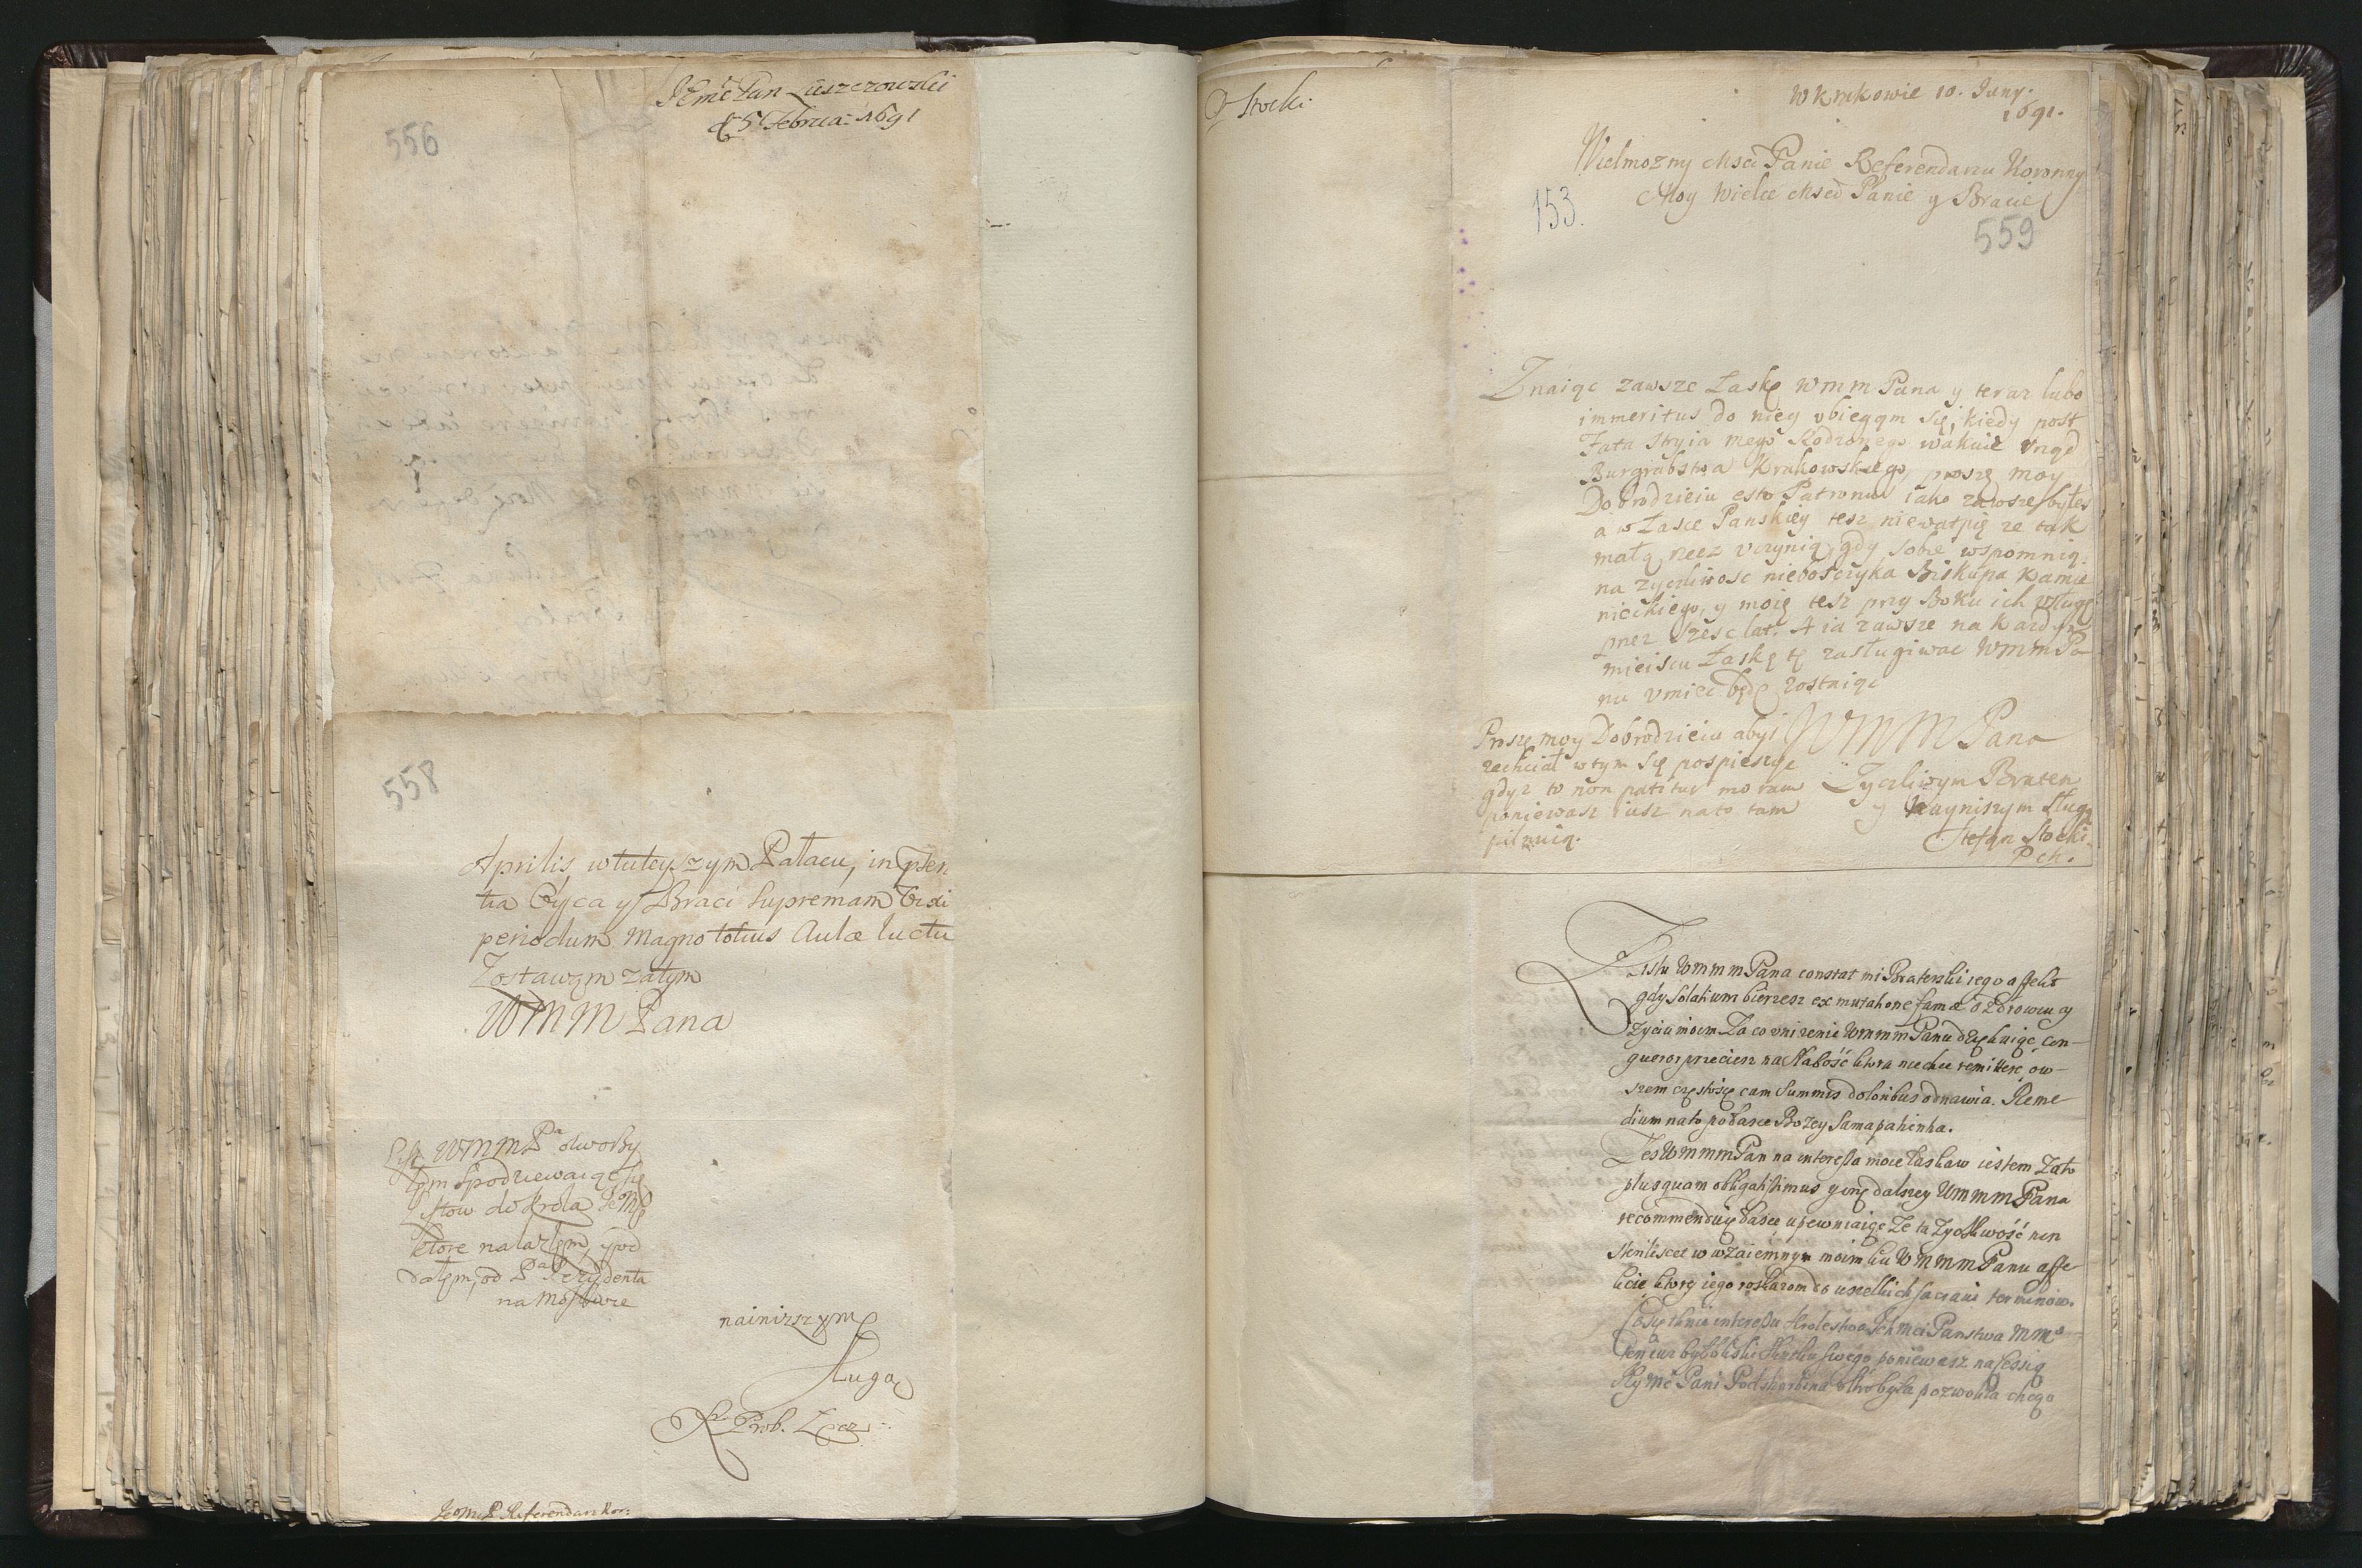 556
Jemć Pan Luszczowski
d 5 Februa: 1691
558
Aprilis, w tuteyszym Pałacu, in psen
tia Oyca y Braci Supremam Vidi
periodum, magno totius Aulæ luctu
Zostawam zatym
WMM Pana
List WMMPa otworzy
łem spodziewaiąc się
listow do Krola JeoMć
ktore nalazłem, y od
dałem, od Pa Rezydenta
na Moskwie
nainiższym
Sługą
Prob.
JeoMć P. Referendarz Kor:
P Stocki
W Krakowie 10. Juny.
1691.
Wielmozny Msci Panie Referendarzu Koronny
Moy Wielce Msci Panie y Bracie
153.
559
Znaiąc zawsze Łaskę WMM Pana y teraz lubo
immeritus do niey ubiegam się, kiedy post
Fata Stryia mego Rodzonego wakuie Urząd
Burgrabstwa Krakowskiego, proszę moy
Dobrodzieiu esto Patronus iako zawsze byłeś
a w Łasce Panskiey tesz niewątpię ze tak
małą rzecz uczynią, gdy sobie wspomnią
na zyczliwosc nieboszczyka Biskupa Kamie
nieckiego, y moię tesz przy Boku ich usługę
przez szesc lat. A ia zawsze na kazdym
mieiscu Łaskę tę zasługiwac WMMPa
nu umiec będę zostaiąc
WMM Pana
Proszę moy Dobrodzieiu abyś
zechciał w tym się pospieszyc
gdysz to non patitur moram
poniewasz iusz na to tam
pilnuią.
Zyczliwym Bratem
y Nayniszym Sługą
Stefan Stocki
Pch.
Listu WmmmPana constat mi Braterski iego affekt
gdy Solatium bierzesz ex mutatione famæ o Zdrowiu y
życiu moim Za co unizenie WmmmPanu dziękuiąc, con-
queror przeciesz na słabość ktora niechce remittere, ow-
szem częstosię cum Summis doloribus odnawia. Reme-
dium na to po Łasce Bozey Sama patientia.
Zes WmmmPan na interessa moie łaskaw iestem Zato
plusquam obligatissimus y onę dalszey WmmmPana
recommenduię łasce upewniaiąc Ze ta Zyczliwość non
w wzaiemnym moim ku WmmmPanu affe
kcie, ktory iego roskazom do wszelkich sactani terminow.
Co się tknie interessu Krolestwa Ich Mci Panstwa MMo
ten iusz był bliski skutku swego poniewasz na cessią
Jeymć Pani Podskarbina była pozwoliła chego